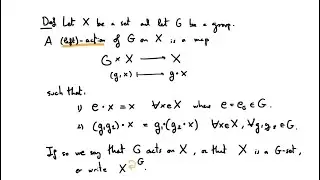 Def Let X be a set and let G be a group.
A (left)-action of G on X is a map
G × X ⟶ X
(g, x) ⟼ g · x
such that:
1) e · x = x ∀x∈X where e = e_G ∈ G.
2) (g₁g₂) · x = g₁ · (g₂ · x) ∀x∈X, ∀g₁,g₂ ∈ G.
If so we say that G acts on X, or that X is a G-set,
or write X ↶ G.